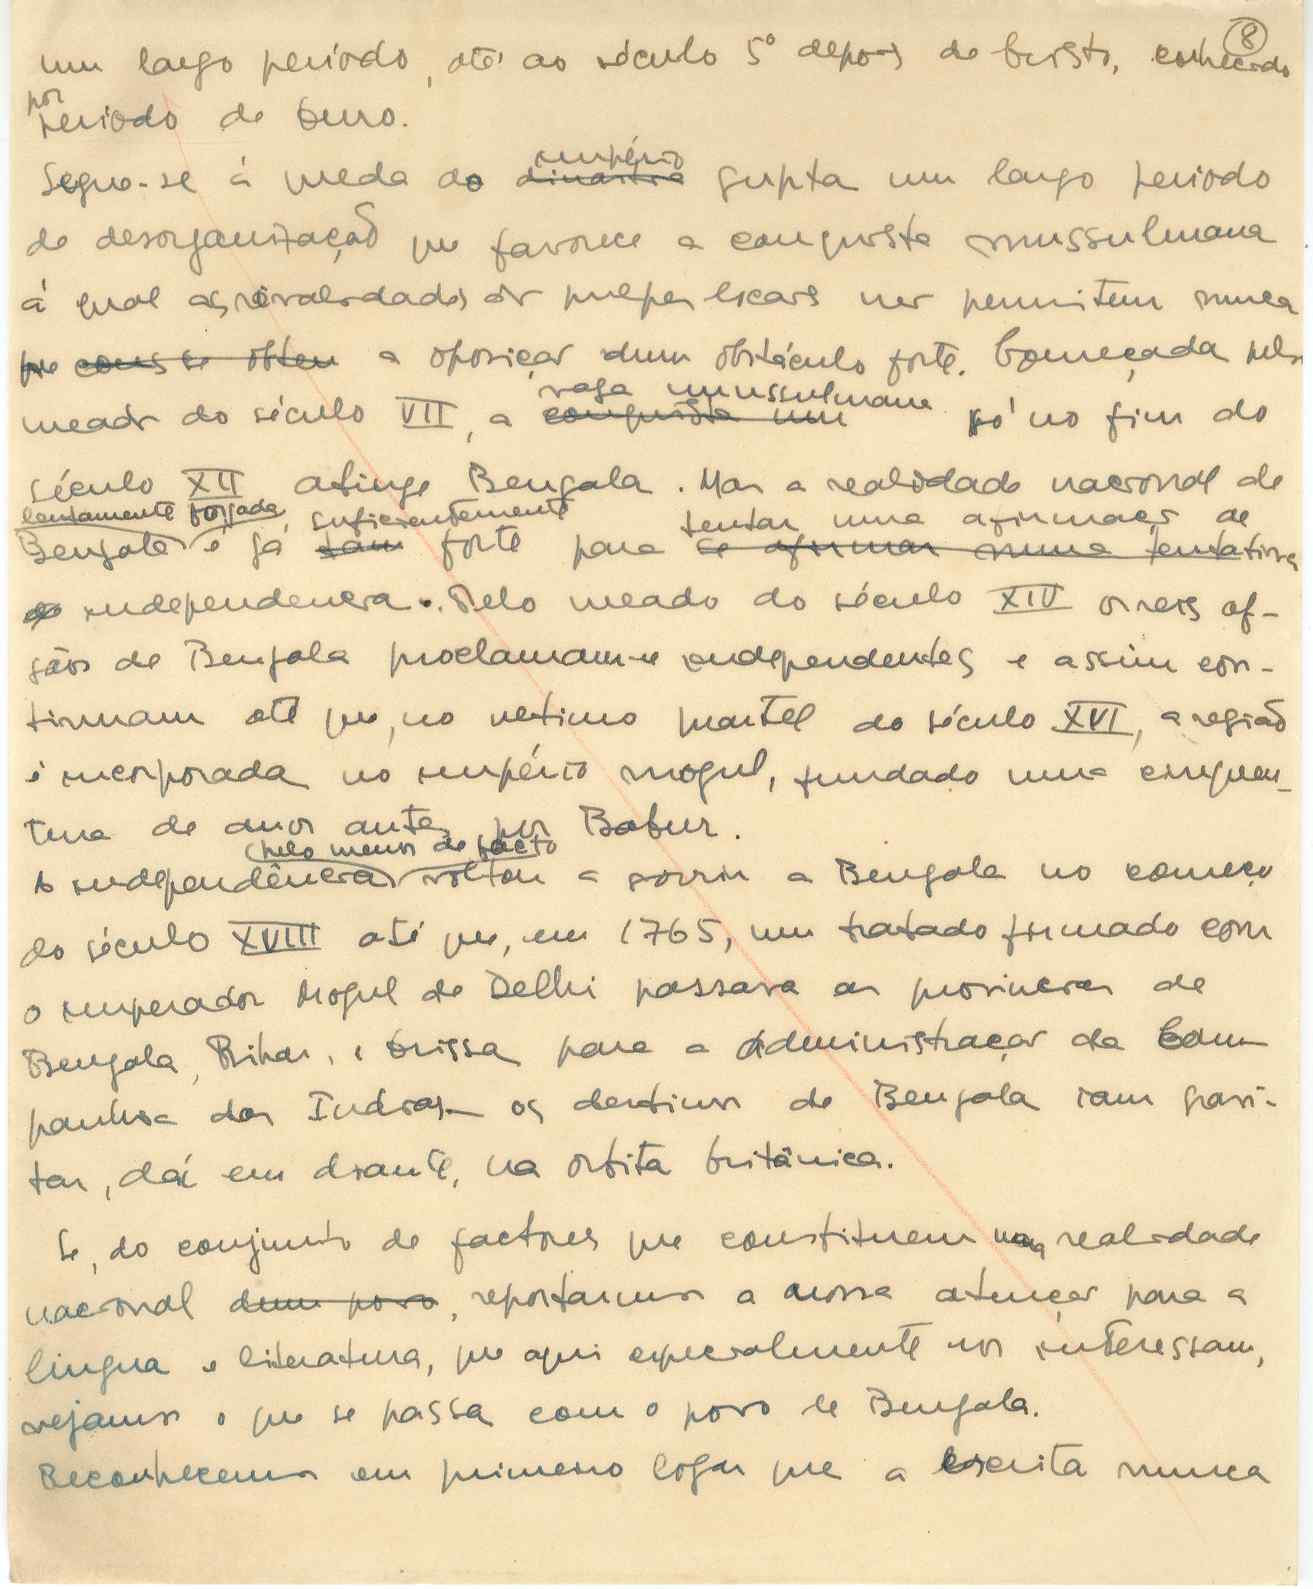 8
um largo período, até ao século 5º depois de Cristo, conhecido
por
periodo de Ouro.
império
Segue-se á queda do dinastia gupta um largo periodo
de desorganização que favorece a conquista mussulmana
á qual as rivalidades permitem nunca
que a oposição dum obstáculo forte. Começada pelos
vaga mussulmana
meados do século VII, a conquista mu só no fim do
século XII atinge Bengala. Mas a realidade nacional de
lentamente forjada, suficientemente tentar uma afirmação de
Bengala é já tam forte para se afirmar numa tentativa
de independencia. Pelo meado do século XIV os reis af-
gãos de Bengala proclamam-se independentes e assim con-
tinuam até que, no ultimo quartel do século XVI, a região
é incorporada no império mogul, fundado uma cinquen-
tena de anos antes por Babur.
(pelo menos de facto)
A independência voltou a sorrir a Bengala no começo
do século XVIII até que, em 1765, um tratado firmado com
o imperador Mogul de Delhi passava as provincias de
Bengala, Bihar, e Orissa para a Administração da Com-
panhia das Indias — os destinos de Bengala iam gravi-
tar, daí em diante, na orbita britânica.
Se, do conjunto de factores que constituem uma realidade
nacional dum povo, reportarmos a nossa atenção para a
lingua e literatura, que aqui especialmente nos interessam,
vejamos o que se passa com o povo de Bengala.
Reconhecemos em primeiro logar que a escrita nunca